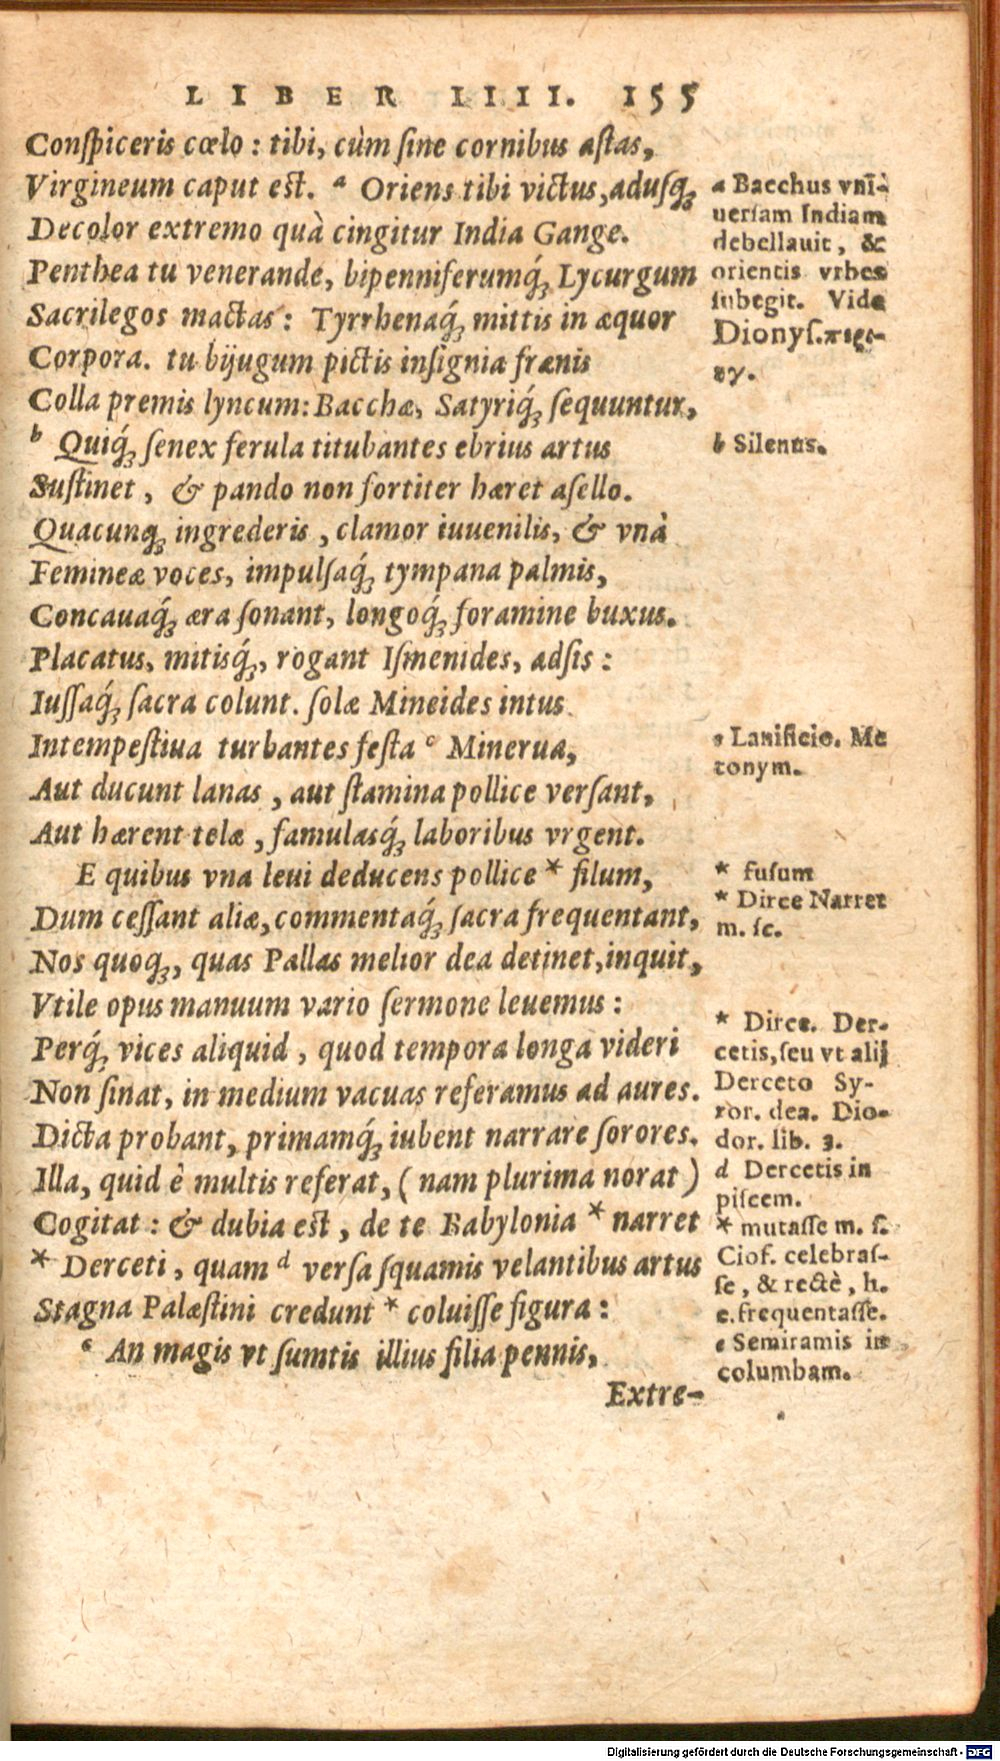 LIBER IIII. 155
Conſpiceris cœlo : tibi, cùm ſine cornibus aſtas,
Virgineum caput eſt. a Oriens tibi victus, aduſq́ꝫ
Decolor extremo quà cingitur India Gange.
Penthea tu venerande, bipenniferumq́ꝫ Lycurgum
Sacrilegos mactas : Tyrrhenaq́ꝫ mittis in æquor
Corpora. tu bijugum pictis inſignia frænis
Colla premis lyncum: Bacchæ, Satyriq́ꝫ ſequuntur,
b Quiq́ꝫ ſenex ferula titubantes ebrius artus
Suſtinet, & pando non fortiter hæret aſello.
Quacunqꝫ ingrederis, clamor iuuenilis, & vnà
Femineæ voces, impulſaq́ꝫ tympana palmis,
Concauaq́ꝫ æra ſonant, longoq́ꝫ foramine buxus.
Placatus, mitisq́ꝫ, rogant Iſmenides, adſis :
Iuſſaq́ꝫ ſacra colunt. ſolæ Mineides intus
Intempeſtiua turbantes feſta c Minerua,
Aut ducunt lanas, aut ſtamina pollice verſant,
Aut hærent telæ, famulasq́ꝫ laboribus vrgent.
E quibus vna leui deducens pollice * filum,
Dum ceſſant aliæ, commentaq́ꝫ ſacra frequentant,
Nos quoqꝫ, quas Pallas melior dea detinet, inquit,
Vtile opus manuum vario ſermone leuemus :
Perq́ꝫ vices aliquid, quod tempora longa videri
Non ſinat, in medium vacuas referamus ad aures.
Dicta probant, primamq́ꝫ iubent narrare ſorores.
Illa, quid è multis referat, ( nam plurima norat )
Cogitat : & dubia eſt, de te Babylonia * narret
* Derceti, quam d verſa ſquamis velantibus artus
Stagna Palæſtini credunt * coluiſſe figura :
e An magis vt ſumtis illius filia pennis,
Extre-
a Bacchus vnī-
uerſam Indiam
debellauit, &
orientis vrbes
ſubegit. Vide
Dionyſ. περι-
ηγ.
b Silenus.
c Lanificio. Me
tonym.
* fuſum
* Dirce Narret
m. ſc.
* Dirce. Der-
cetis, ſeu vt alij
Derceto Sy-
ror. dea. Dio-
dor. lib. 3.
d Dercetis in
piſcem.
* mutaſſe m. ſ.
Cioſ. celebraſ-
ſe, & rectè, h.
e. frequentaſſe.
e Semiramis in
columbam.
Digitalisierung gefördert durch die Deutsche Forschungsgemeinschaft - DFG